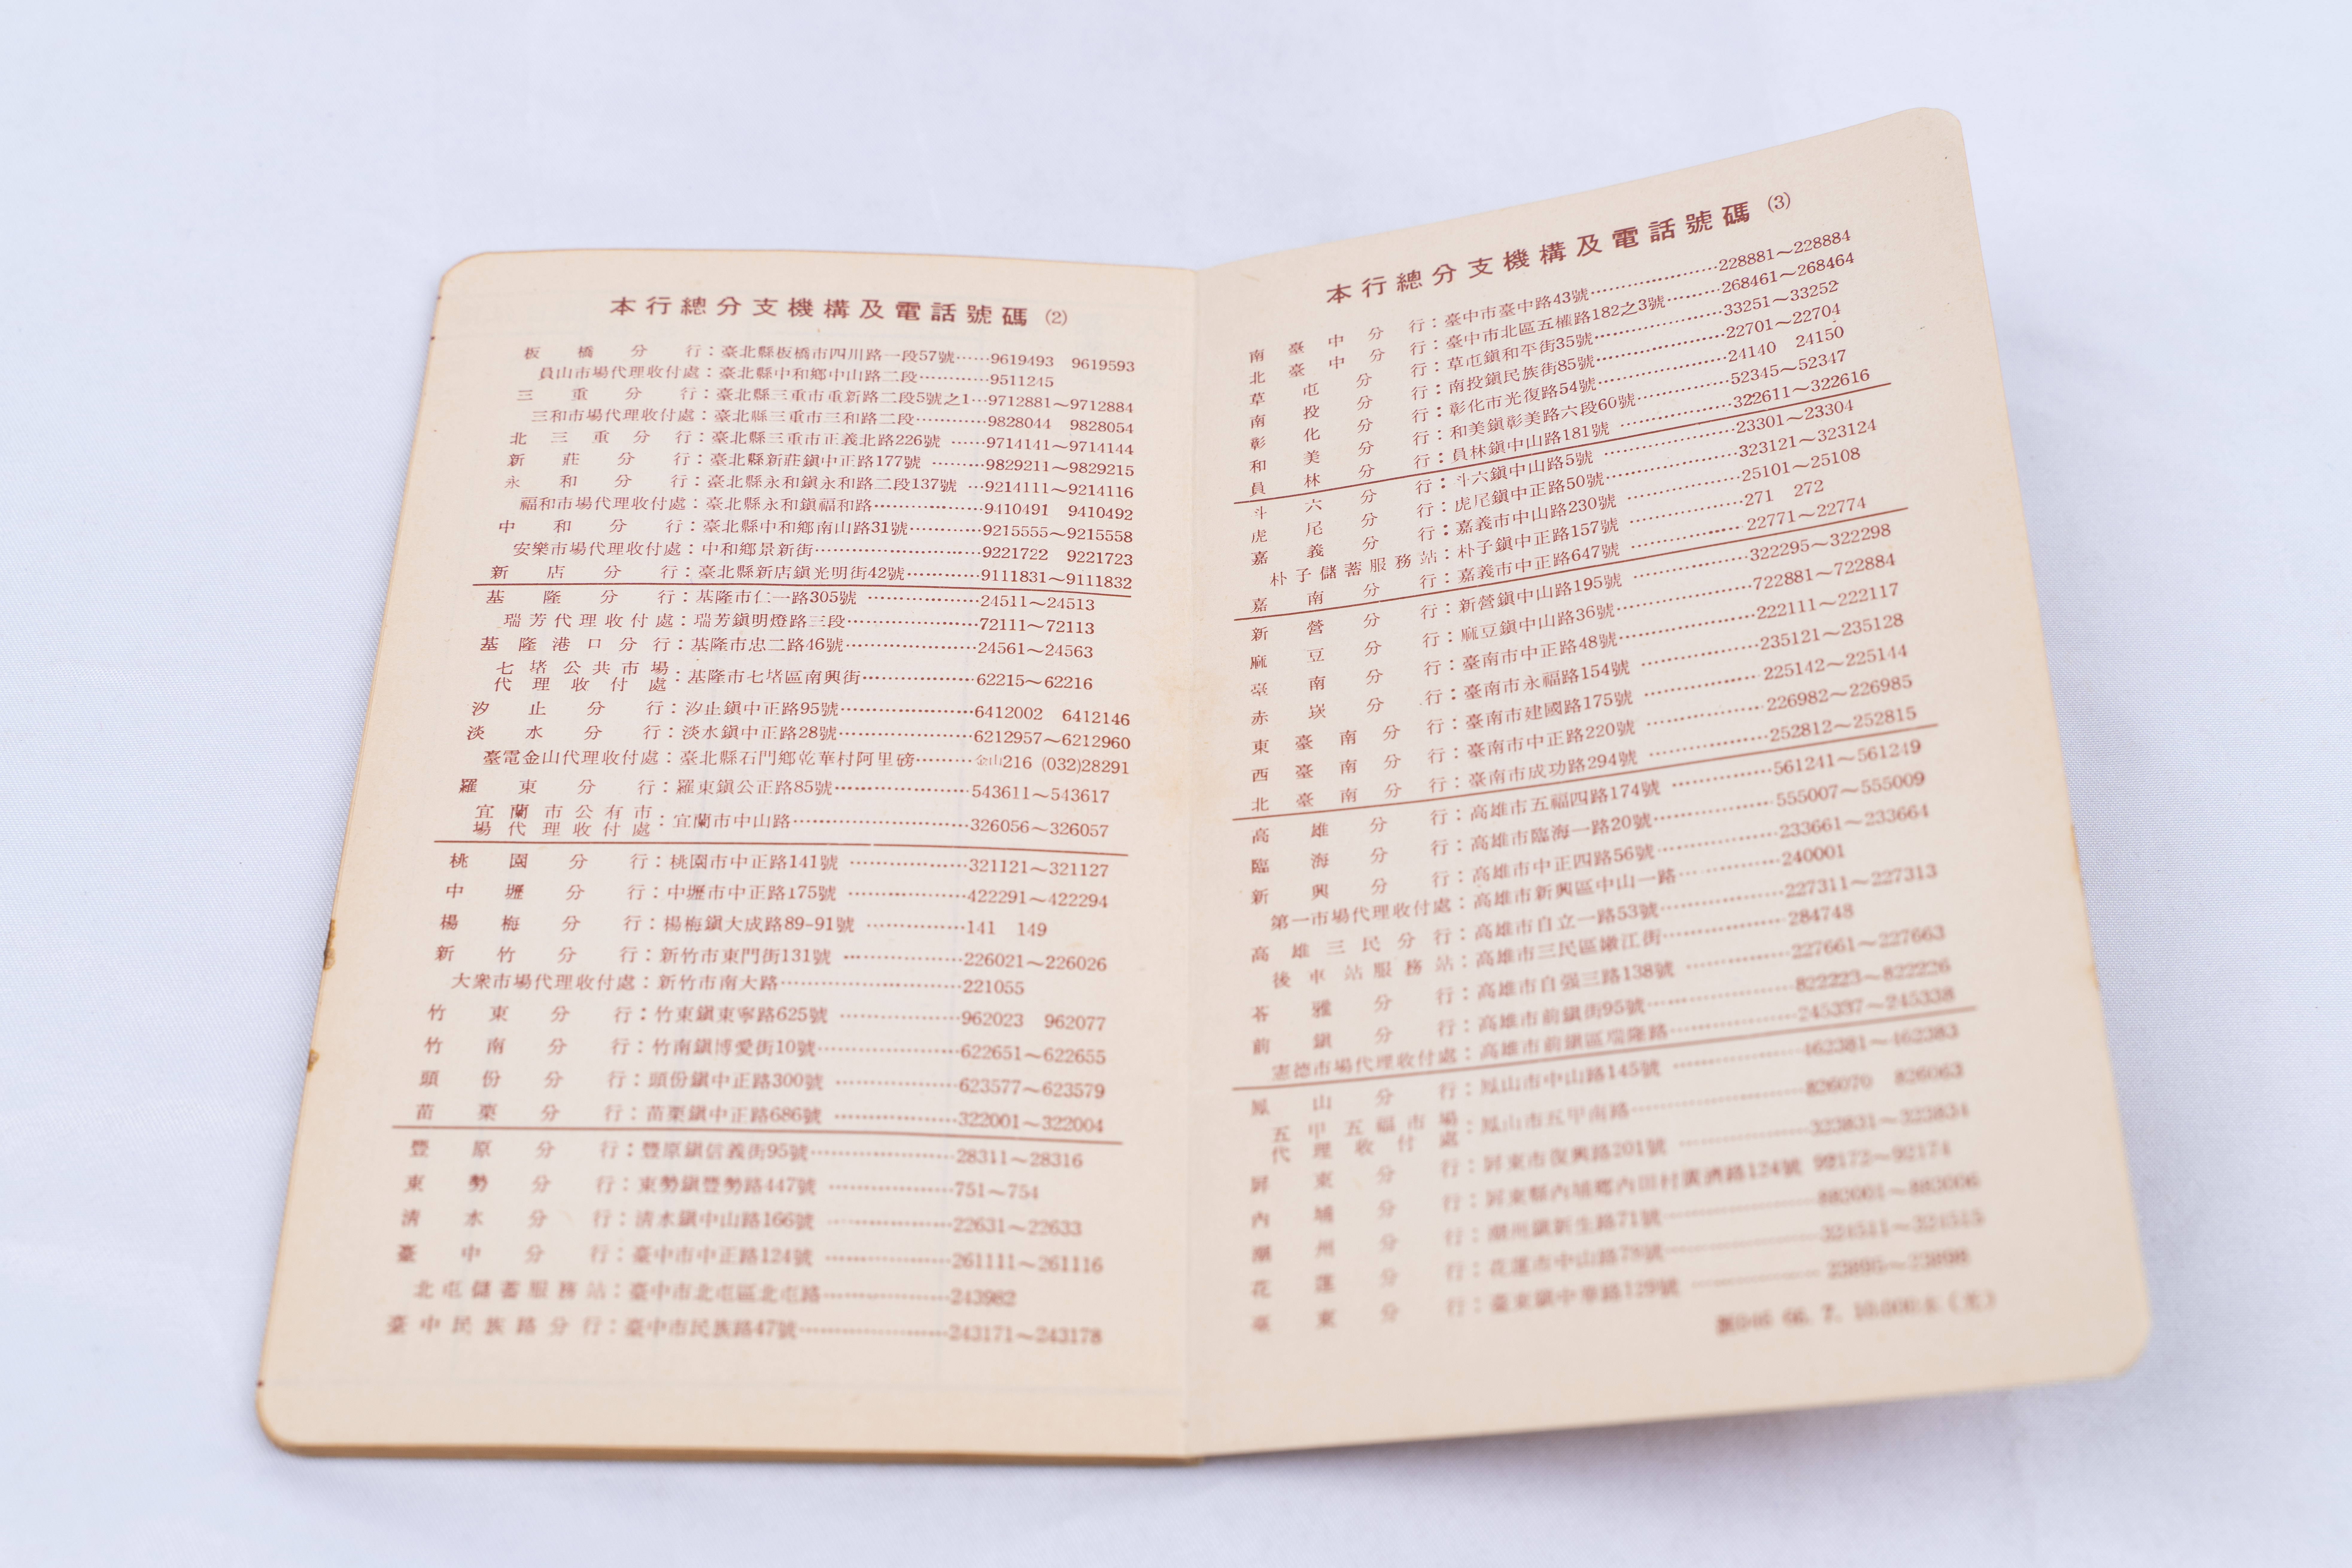 本行總分支機構及電話號碼 (2)
板橋分行：臺北縣板橋市四川路一段57號……9619493 9619593
員山市場代理收付處：臺北縣中和鄉中山路二段…………9511245
三重分行：臺北縣三重市重新路二段5號之1…9712881～9712884
三和市場代理收付處：臺北縣三重市三和路二段…………9828044 9828054
北三重分行：臺北縣三重市正義北路226號……9714141～9714144
新莊分行：臺北縣新莊鎮中正路177號………9829211～9829215
永和分行：臺北縣永和鎮永和路二段137號…9214111～9214116
福和市場代理收付處：臺北縣永和鎮福和路…………………9410491 9410492
中和分行：臺北縣中和鄉南山路31號…………9215555～9215558
安樂市場代理收付處：中和鄉景新街………………………9221722 9221723
新店分行：臺北縣新店鎮光明街42號…………9111831～9111832
基隆分行：基隆市仁一路305號………………24511～24513
瑞芳代理收付處：瑞芳鎮明燈路三段…………………72111～72113
基隆港口分行：基隆市忠二路46號…………………24561～24563
七堵公共市場代理收付處：基隆市七堵區南興街………………62215～62216
汐止分行：汐止鎮中正路95號…………………6412002 6412146
淡水分行：淡水鎮中正路28號…………………6212957～6212960
臺電金山代理收付處：臺北縣石門鄉乾華村阿里磅………金山216 (032)28291
羅東分行：羅東鎮公正路85號…………………543611～543617
宜蘭市公有市場代理收付處：宜蘭市中山路………………………326056～326057
桃園分行：桃園市中正路141號………………321121～321127
中壢分行：中壢市中正路175號………………422291～422294
楊梅分行：楊梅鎮大成路89-91號……………141 149
新竹分行：新竹市東門街131號………………226021～226026
大衆市場代理收付處：新竹市南大路………………………221055
竹東分行：竹東鎮東寧路625號………………962023 962077
竹南分行：竹南鎮博愛街10號…………………622651～622655
頭份分行：頭份鎮中正路300號………………623577～623579
苗栗分行：苗栗鎮中正路686號………………322001～322004
豐原分行：豐原鎮信義街95號…………………28311～28316
東勢分行：東勢鎮豐勢路447號………………751～754
清水分行：清水鎮中山路166號………………22631～22633
臺中分行：臺中市中正路124號………………261111～261116
北屯儲蓄服務站：臺中市北屯區北屯路………………243982
臺中民族路分行：臺中市民族路47號…………………243171～243178
本行總分支機構及電話號碼 (3)
南臺中分行：臺中市臺中路43號………………228881～228884
北臺中分行：臺中市北區五權路182之3號………268461～268464
草屯分行：草屯鎮和平街35號…………………33251～33252
南投分行：南投鎮民族街85號…………………22701～22704
彰化分行：彰化市光復路54號…………………24140 24150
和美分行：和美鎮彰美路六段60號……………52345～52347
員林分行：員林鎮中山路181號………………322611～322616
斗六分行：斗六鎮中山路5號…………………23301～23304
虎尾分行：虎尾鎮中正路50號…………………323121～323124
嘉義分行：嘉義市中山路230號………………25101～25108
朴子儲蓄服務站：朴子鎮中正路157號………………271 272
嘉南分行：嘉義市中正路647號………………22771～22774
新營分行：新營鎮中山路195號………………322295～322298
麻豆分行：麻豆鎮中山路36號…………………722881～722884
臺南分行：臺南市中正路48號…………………222111～222117
赤崁分行：臺南市永福路154號………………235121～235128
東臺南分行：臺南市建國路175號………………225142～225144
西臺南分行：臺南市中正路220號………………226982～226985
北臺南分行：臺南市成功路294號………………252812～252815
高雄分行：高雄市五福四路174號……………561241～561249
臨海分行：高雄市臨海一路20號………………555007～555009
新興分行：高雄市中正四路56號………………233661～233664
第一市場代理收付處：高雄市新興區中山一路……………240001
高雄三民分行：高雄市自立一路53號………………227311～227313
後車站服務站：高雄市三民區嫩江街………………284748
苓雅分行：高雄市自强三路138號……………227661～227663
前鎮分行：高雄市前鎮街95號…………………822223～822226
憲德市場代理收付處：高雄市前鎮區瑞隆路………………245337～245338
鳳山分行：鳳山市中山路145號………………462381～462383
五甲五福市場代理收付處：鳳山市五甲南路……………………826070 826063
屏東分行：屏東市復興路201號………………323831～323834
內埔分行：屏東縣內埔鄉內田村廣濟路124號 92172～92174
潮州分行：潮州鎮新生路71號…………………882001～882006
花蓮分行：花蓮市中山路78號…………………324511～324515
臺東分行：臺東鎮中華路129號………………